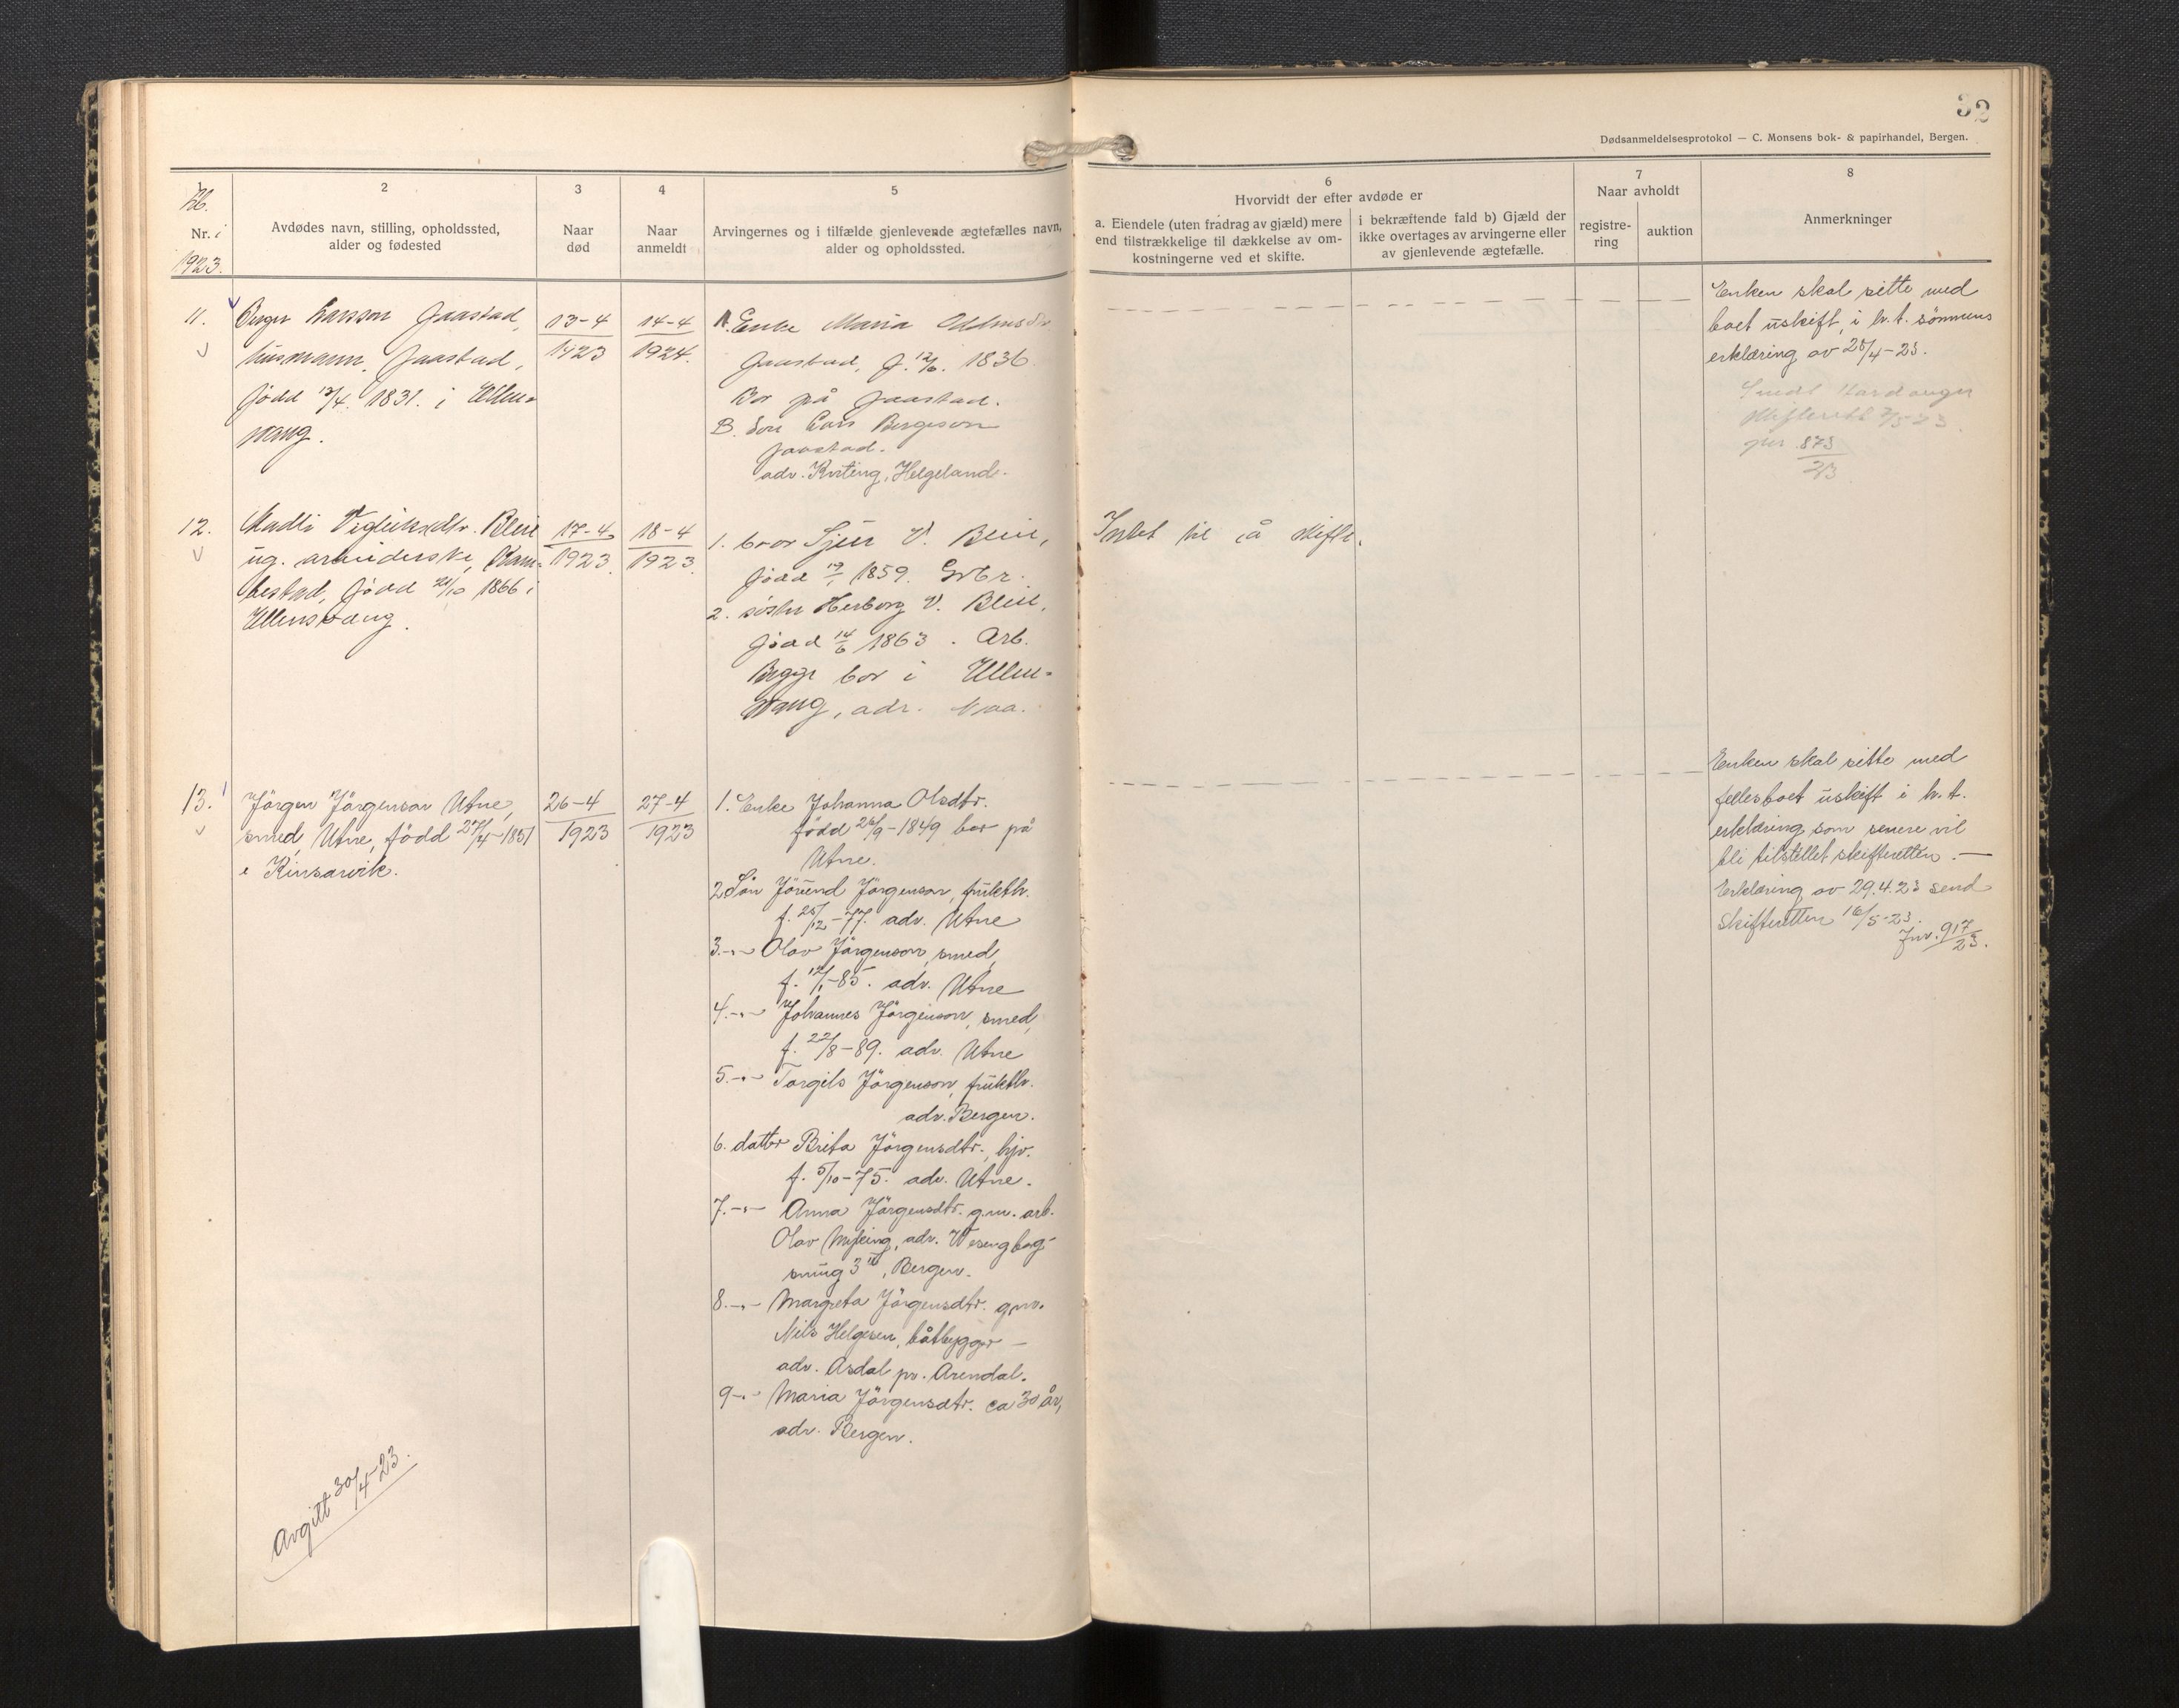 32
Dødsanmeldelsesprotokol — C. Monsens bok- & papirhandel, Bergen.
1
Nr. i
1923.
2
Avdødes navn, stilling, opholdssted,
alder og fødested
3
Naar
død
4
Naar
anmeldt
5
Arvingernes og i tilfælde gjenlevende ægtefælles navn,
alder og opholdssted.
6
Hvorvidt der efter avdøde er
a. Eiendele (uten fradrag av gjæld) mere
end tilstrækkelige til dækkelse av om-
kostningerne ved et skifte.
i bekræftende fald b) Gjæld der
ikke overtages av arvingerne eller
av gjenlevende ægtefælle.
7
Naar avholdt
registre-
ring
auktion
8
Anmerkninger
11.
Berger Larsson Jaastad,
husmann, Jaastad,
född 13/4 1831. i Ullens-
vang.
13-4
1923
14-4
1924.
A. Enke Maria
Jaastad, f. 1836
Bor på Jaastad.
B. Son Lars Bergeson
Jaastad.
adr. Helgeland.
Enken skal sitte med
boet uskift, i h.t. sönnens
erklæring av 25/4-23.
Hardanger
Skifterett 7/5-23.
jnr. 873
23
12.
Madli Vigleiksdtr. Bleie
ug. arbeiderske,
född 1866 i
Ullensvang.
17-4
1923
18-4
1923
1. bror Sjur V. Bleie,
född 1859. Grbr.
2. söster Herborg V. Bleie,
född 14/6 1863. Arb.
Begge bor i Ullens-
vang, adr. Naa.
Intet til å skifte.
13.
Jörgen Jörgenson Utne,
smed, Utne, född 27/4-1851
i Kinsarvik.
26-4
1923
27-4
1923
1. Enke Johanna Olsdtr.
född 26/9-1849 bor på
Utne.
2. Sön Jörund Jörgenson, frukth.
f. 25/12-77. adr. Utne
3. -"- Olav Jörgenson, smed,
f. 12/1-85. adr. Utne
4. -"- Johannes Jörgenson, smed,
f. 22/8-89. adr. Utne
5. -"- Torgils Jörgenson, frukth.
adr. Bergen.
6. datter Brita Jörgensdtr., hjv.
f. 5/10-75. adr. Utne.
7. -"- Anna Jörgensdtr. g.m. arb.
Olav adr.
smug 3, Bergen.
8. -"- Margreta Jörgensdtr. g.m.
Nils Helgesen, båtbygger —
adr. Asdal pr. Arendal.
9 -"- Maria Jörgensdtr. ca 30 år,
adr. Bergen.
Enken skal sitte med
fellesboet uskift i h.t.
erklæring som senere vil
bli tilstillet skifteretten. —
Erklæring av 29.4.23 send
skifteretten 16/5-23.
Jnr. 917
23.
Avgitt 30/4-23.